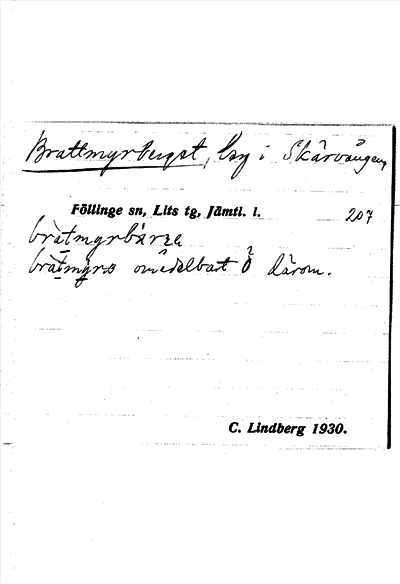 Brattmyrberget, by i Skärvången,
Föllinge sn, Lits tg, Jämtl. l. 207
bràtmyrbärze
bràtmyra omedelbart Ö därom.
C. Lindberg 1930.